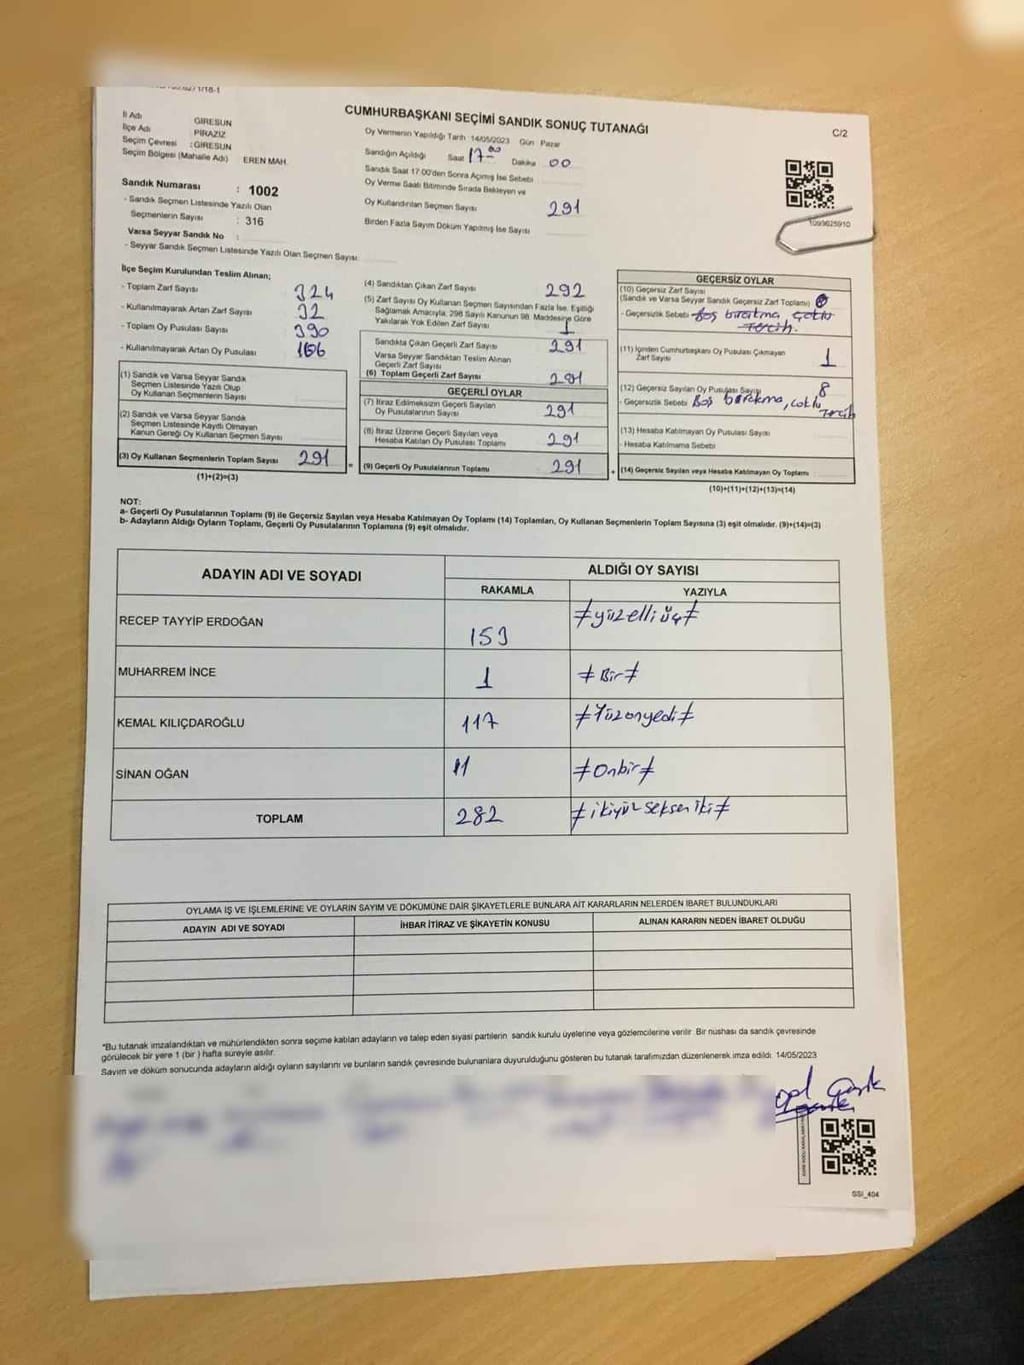 CUMHURBAŞKANI SEÇİMİ SANDIK SONUÇ TUTANAĞI
C/2
İl Adı GİRESUN
İlçe Adı PİRAZİZ
Seçim Çevresi : GİRESUN
Seçim Bölgesi (Mahalle Adı) EREN MAH.
Sandık Numarası : 1002
- Sandık Seçmen Listesinde Yazılı Olan
Seçmenlerin Sayısı : 316
Varsa Seyyar Sandık No :
- Seyyar Sandık Seçmen Listesinde Yazılı Olan Seçmen Sayısı:
Oy Vermenin Yapıldığı Tarih 14/05/2023 Gün Pazar
Sandığın Açıldığı Saat 17-00 Dakika 00
Sandık Saat 17:00'den Sonra Açımış İse Sebebi
Oy Verme Saati Bitiminde Sırada Bekleyen ve
Oy Kullandırılan Seçmen Sayısı 291
Birden Fazla Sayım Döküm Yapılmış İse Sayısı
1099625910
İlçe Seçim Kurulundan Teslim Alınan;
- Toplam Zarf Sayısı 324
- Kullanılmayarak Artan Zarf Sayısı 32
- Toplam Oy Pusulası Sayısı 390
- Kullanılmayarak Artan Oy Pusulası
(1) Sandık ve Varsa Seyyar Sandık
Seçmen Listesinde Yazılı Olup
Oy Kullanan Seçmenlerin Sayısı
(2) Sandık ve Varsa Seyyar Sandık
Seçmen Listesinde Kayıtlı Olmayan
Kanun Gereği Oy Kullanan Seçmen Sayısı
(3) Oy Kullanan Seçmenlerin Toplam Sayısı 291
(1)+(2)=(3)
(4) Sandıktan Çıkan Zarf Sayısı 292
(5) Zarf Sayısı Oy Kullanan Seçmen Sayısından Fazla İse, Eşitliği
Sağlamak Amacıyla, 298 Sayılı Kanunun 98. Maddesine Göre
Yakılarak Yok Edilen Zarf Sayısı 1
Sandıkta Çıkan Geçerli Zarf Sayısı 291
Varsa Seyyar Sandıktan Teslim Alınan
Geçerli Zarf Sayısı
(6) Toplam Geçerli Zarf Sayısı 291
GEÇERLİ OYLAR
(7) İtiraz Edilmeksizin Geçerli Sayılan
Oy Pusulalarının Sayısı 291
(8) İtiraz Üzerine Geçerli Sayılan veya
Hesaba Katılan Oy Pusulası Toplamı 291
= (9) Geçerli Oy Pusulalarının Toplamı 291
GEÇERSİZ OYLAR
(10) Geçersiz Zarf Sayısı
(Sandık ve Varsa Seyyar Sandık Geçersiz Zarf Toplamı)
- Geçersizlik Sebebi Boş bırakma çoklu
tercih.
(11) İçinden Cumhurbaşkanı Oy Pusulası Çıkmayan
Zarf Sayısı 1
(12) Geçersiz Sayılan Oy Pusulası Sayısı 8
- Geçersizlik Sebebi Boş bırakma, çoklu
tercih
(13) Hesaba Katılmayan Oy Pusulası Sayısı
- Hesaba Katılmama Sebebi
+ (14) Geçersiz Sayılan veya Hesaba Katılmayan Oy Toplamı
(10)+(11)+(12)+(13)=(14)
NOT:
a- Geçerli Oy Pusulalarının Toplamı (9) ile Geçersiz Sayılan veya Hesaba Katılmayan Oy Toplamı (14) Toplamları, Oy Kullanan Seçmenlerin Toplam Sayısına (3) eşit olmalıdır. (9)+(14)=(3)
b- Adayların Aldığı Oyların Toplamı, Geçerli Oy Pusulalarının Toplamına (9) eşit olmalıdır.
ADAYIN ADI VE SOYADI ALDIĞI OY SAYISI
RAKAMLA YAZIYLA
RECEP TAYYİP ERDOĞAN 153 ≠yüzelliüç≠
MUHARREM İNCE 1 ≠Bir≠
KEMAL KILIÇDAROĞLU 117 ≠Yüzonyedi≠
SİNAN OĞAN 11 ≠Onbir≠
TOPLAM 282 ≠ikiyüzsekseniki≠
OYLAMA İŞ VE İŞLEMLERİNE VE OYLARIN SAYIM VE DÖKÜMÜNE DAİR ŞİKAYETLERLE BUNLARA AİT KARARLARIN NELERDEN İBARET BULUNDUKLARI
ADAYIN ADI VE SOYADI İHBAR İTİRAZ VE ŞİKAYETİN KONUSU ALINAN KARARIN NEDEN İBARET OLDUĞU
*Bu tutanak imzalandıktan ve mühürlendikten sonra seçime katılan adayların ve talep eden siyasi partilerin sandık kurulu üyelerine veya gözlemcilerine verilir. Bir nüshası da sandık çevresinde
görülecek bir yere 1 (bir) hafta süreyle asılır.
Sayım ve döküm sonucunda adayların aldığı oyların sayılarını ve bunların sandık çevresinde bulunanlara duyurulduğunu gösteren bu tutanak tarafımızdan düzenlenerek imza edildi. 14/05/2023
SSI_404